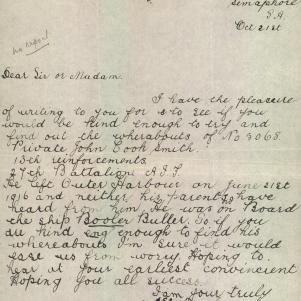 Semaphore
S.A.
Oct 21st
no report
Dear Sir or Madam.
I have the pleasure
of writing to you for & to see if you
would be kind enough to try and
find out the whereabouts of No 3065.
Private John Cook Smith.
15th reinforcements
27th Battalion A.I.F.
He left Outer Harbour on June 21st
1916 and neither his parents have
heard from him, he was on Board
the Ship Booler Buller. So if you
are kind enough to find his
whereabouts I'm sure it would
ease us from worry. Hoping to
hear at your earliest convincient
Hoping you all success.
I am your truly